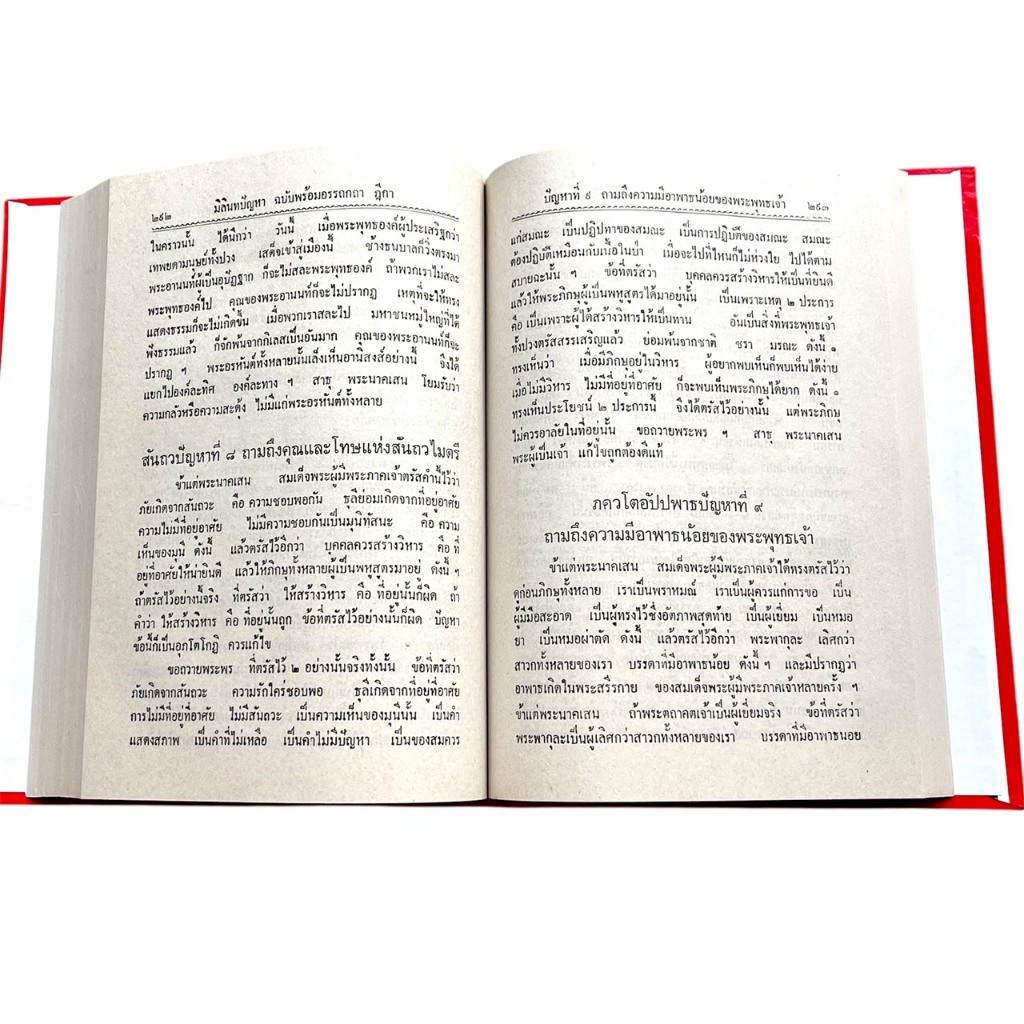 ๒๙๒ มิลินทปัญหา ฉบับพร้อมอรรถกถา ฎีกา
ในคราวนั้น ได้นึกว่า วันนี้ เมื่อพระพุทธองค์ผู้ประเสริฐกว่า
เทพยดามนุษย์ทั้งปวง เสด็จเข้าสู่เมืองนี้ ช้างธนบาลก็วิ่งตรงมา
พระอานนท์ผู้เป็นอุปัฏฐาก ก็จะไม่สละพระพุทธองค์ ถ้าพวกเราไม่สละ
พระพุทธองค์ไป คุณของพระอานนท์ก็จะไม่ปรากฏ เหตุที่จะให้ทรง
แสดงธรรมก็จะไม่เกิดขึ้น เมื่อพวกเราสละไป มหาชนหมู่ใหญ่ที่ได้
ฟังธรรมแล้ว ก็จักพ้นจากกิเลสเป็นอันมาก คุณของพระอานนท์ก็จะ
ปรากฏ ฯ พระอรหันต์ทั้งหลายนั้นเล็งเห็นอานิสงส์อย่างนี้ จึงได้
แยกไปองค์ละทิศ องค์ละทาง ฯ สาธุ พระนาคเสน โยมรับว่า
ความกลัวหรือความสะดุ้ง ไม่มีแก่พระอรหันต์ทั้งหลาย
สันถวปัญหาที่ ๘ ถามถึงคุณและโทษแห่งสันถวไมตรี
ข้าแต่พระนาคเสน สมเด็จพระผู้มีพระภาคเจ้าตรัสคำนี้ไว้ว่า
ภัยเกิดจากสันถวะ คือ ความชอบพอกัน ธุลีย่อมเกิดจากที่อยู่อาศัย
ความไม่มีที่อยู่อาศัย ไม่มีความชอบกันเป็นมุนิทัสนะ คือ ความ
เห็นของมุนี ดังนี้ แล้วตรัสไว้อีกว่า บุคคลควรสร้างวิหาร คือ ที่
อยู่ที่อาศัยให้น่ายินดี แล้วให้ภิกษุทั้งหลายผู้เป็นพหูสูตรมาอยู่ ดังนี้ ฯ
ถ้าตรัสไว้อย่างนี้จริง ที่ตรัสว่า ให้สร้างวิหาร คือ ที่อยู่นั้นก็ผิด ถ้า
คำว่า ให้สร้างวิหาร คือ ที่อยู่นั้นถูก ข้อที่ตรัสไว้อย่างนั้นก็ผิด ปัญหา
ข้อนี้ก็เป็นอุภโตโกฏิ ควรแก้ไข
ขอถวายพระพร ที่ตรัสไว้ ๒ อย่างนั้นจริงทั้งนั้น ข้อที่ตรัสว่า
ภัยเกิดจากสันถวะ ความรักใคร่ชอบพอ ธุลีเกิดจากที่อยู่ที่อาศัย
การไม่มีที่อยู่ที่อาศัย ไม่มีสันถวะ เป็นความเห็นของมุนีนั้น เป็นคำ
แสดงสภาพ เป็นคำที่ไม่เหลือ เป็นคำไม่มีปัญหา เป็นของสมควร
ปัญหาที่ ๙ ถามถึงความมีอาพาธน้อยของพระพุทธเจ้า ๒๙๓
แก่สมณะ เป็นปฏิปทาของสมณะ เป็นการปฏิบัติของสมณะ สมณะ
ต้องปฏิบัติเหมือนกับเนื้อในป่า เมื่อจะไปที่ไหนก็ไม่ห่วงใย ไปได้ตาม
สบายฉะนั้น ฯ ข้อที่ตรัสว่า บุคคลควรสร้างวิหารให้เป็นที่ยินดี
แล้วให้พระภิกษุผู้เป็นพหูสูตรได้มาอยู่นั้น เป็นเพราะเหตุ ๒ ประการ
คือ เป็นเพราะผู้ได้สร้างวิหารให้เป็นทาน อันเป็นสิ่งที่พระพุทธเจ้า
ทั้งปวงตรัสสรรเสริญแล้ว ย่อมพ้นจากชาติ ชรา มรณะ ดังนี้ ๑
ทรงเห็นว่า เมื่อมีภิกษุอยู่ในวิหาร ผู้อยากพบเห็นก็พบเห็นได้ง่าย
เมื่อไม่มีวิหาร ไม่มีที่อยู่ที่อาศัย ก็จะพบเห็นพระภิกษุได้ยาก ดังนี้ ๑
ทรงเห็นประโยชน์ ๒ ประการนี้ จึงได้ตรัสไว้อย่างนั้น แต่พระภิกษุ
ไม่ควรอาลัยในที่อยู่นั้น ขอถวายพระพร ฯ สาธุ พระนาคเสน
พระผู้เป็นเจ้า แก้ไขถูกต้องดีแท้
ภควโตอัปปพาธปัญหาที่ ๙
ถามถึงความมีอาพาธน้อยของพระพุทธเจ้า
ข้าแต่พระนาคเสน สมเด็จพระผู้มีพระภาคเจ้าได้ทรงตรัสไว้ว่า
ดูก่อนภิกษุทั้งหลาย เราเป็นพราหมณ์ เราเป็นผู้ควรแก่การขอ เป็น
ผู้มีมือสะอาด เป็นผู้ทรงไว้ซึ่งอัตภาพสุดท้าย เป็นผู้เยี่ยม เป็นหมอ
ยา เป็นหมอผ่าตัด ดังนี้ แล้วตรัสไว้อีกว่า พระพากุละ เลิศกว่า
สาวกทั้งหลายของเรา บรรดาที่มีอาพาธน้อย ดังนี้ ฯ และมีปรากฏว่า
อาพาธเกิดในพระสรีรกาย ของสมเด็จพระผู้มีพระภาคเจ้าหลายครั้ง ฯ
ข้าแต่พระนาคเสน ถ้าพระตถาคตเจ้าเป็นผู้เยี่ยมจริง ข้อที่ตรัสว่า
พระพากุละเป็นผู้เลิศกว่าสาวกทั้งหลายของเรา บรรดาที่มีอาพาธน้อย